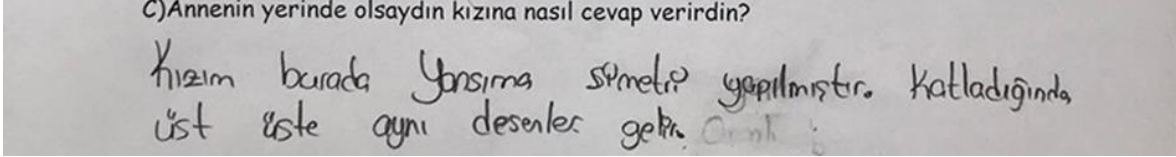 C)Annenin yerinde olsaydın kızına nasıl cevap verirdin?
Kızım burada Yansıma simetri yapılmıştır. Katladığında
üst üste aynı desenler gelir.